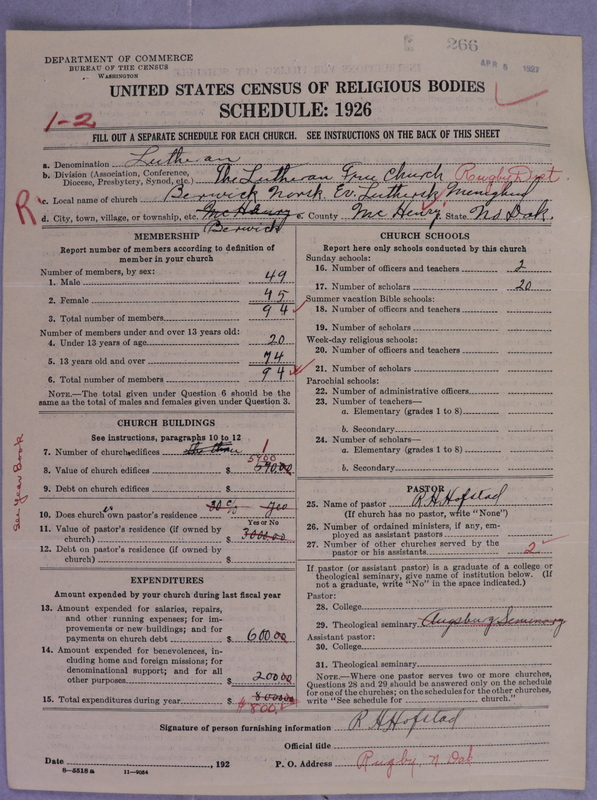 266
APR 5 1927
DEPARTMENT OF COMMERCE
BUREAU OF THE CENSUS
WASHINGTON
UNITED STATES CENSUS OF RELIGIOUS BODIES
SCHEDULE: 1926
1-2
FILL OUT A SEPARATE SCHEDULE FOR EACH CHURCH. SEE INSTRUCTIONS ON THE BACK OF THIS SHEET
a. Denomination Lutheran
b. Division (Association, Conference, Diocese, Presbytery, Synod, etc.) The Lutheran Free Church Rugby Dist.
R
c. Local name of church Berwick Norsk Ev. Luthersk Menighed
d. City, town, village, or township, etc. McHenry e. County McHenry State No Dak.
Berwick
MEMBERSHIP
Report number of members according to definition of
member in your church
Number of members, by sex:
1. Male 49
2. Female 45
3. Total number of members 94
Number of members under and over 13 years old:
4. Under 13 years of age 20
5. 13 years old and over 74
6. Total number of members 94
NOTE.—The total given under Question 6 should be
the same as the total of males and females given under Question 3.
CHURCH BUILDINGS
See instructions, paragraphs 10 to 12
7. Number of church edifices 1
5700
8. Value of church edifices $ 5700.00
9. Debt on church edifices $
10. Does church own pastor's residence yes
Yes or No
11. Value of pastor's residence (if owned by
church) $ 3000.00
12. Debt on pastor's residence (if owned by
church) $
See Year Book
EXPENDITURES
Amount expended by your church during last fiscal year
13. Amount expended for salaries, repairs,
and other running expenses; for im-
provements or new buildings; and for
payments on church debt $ 600.00
14. Amount expended for benevolences, in-
cluding home and foreign missions; for
denominational support; and for all
other purposes $ 200.00
15. Total expenditures during year $ 800.00
$ 800.
CHURCH SCHOOLS
Report here only schools conducted by this church
Sunday schools:
16. Number of officers and teachers 2
17. Number of scholars 20
Summer vacation Bible schools:
18. Number of officers and teachers
19. Number of scholars
Week-day religious schools:
20. Number of officers and teachers
21. Number of scholars
Parochial schools:
22. Number of administrative officers
23. Number of teachers—
a. Elementary (grades 1 to 8)
b. Secondary
24. Number of scholars—
a. Elementary (grades 1 to 8)
b. Secondary
PASTOR
25. Name of pastor R. H. Hofstad
(If church has no pastor, write "None")
26. Number of ordained ministers, if any, em-
ployed as assistant pastors
27. Number of other churches served by the
pastor or his assistants 2
If pastor (or assistant pastor) is a graduate of a college or
theological seminary, give name of institution below. (If
not a graduate, write "No" in the space indicated.)
Pastor:
28. College
29. Theological seminary Augsburg Seminary
Assistant pastor:
30. College
31. Theological seminary
NOTE.—Where one pastor serves two or more churches,
Questions 28 and 29 should be answered only on the schedule
for one of the churches; on the schedules for the other churches,
write "See schedule for church."
Signature of person furnishing information R H Hofstad
Official title
Date , 192 P. O. Address Rugby, N Dak
8-5518 a 11-9054